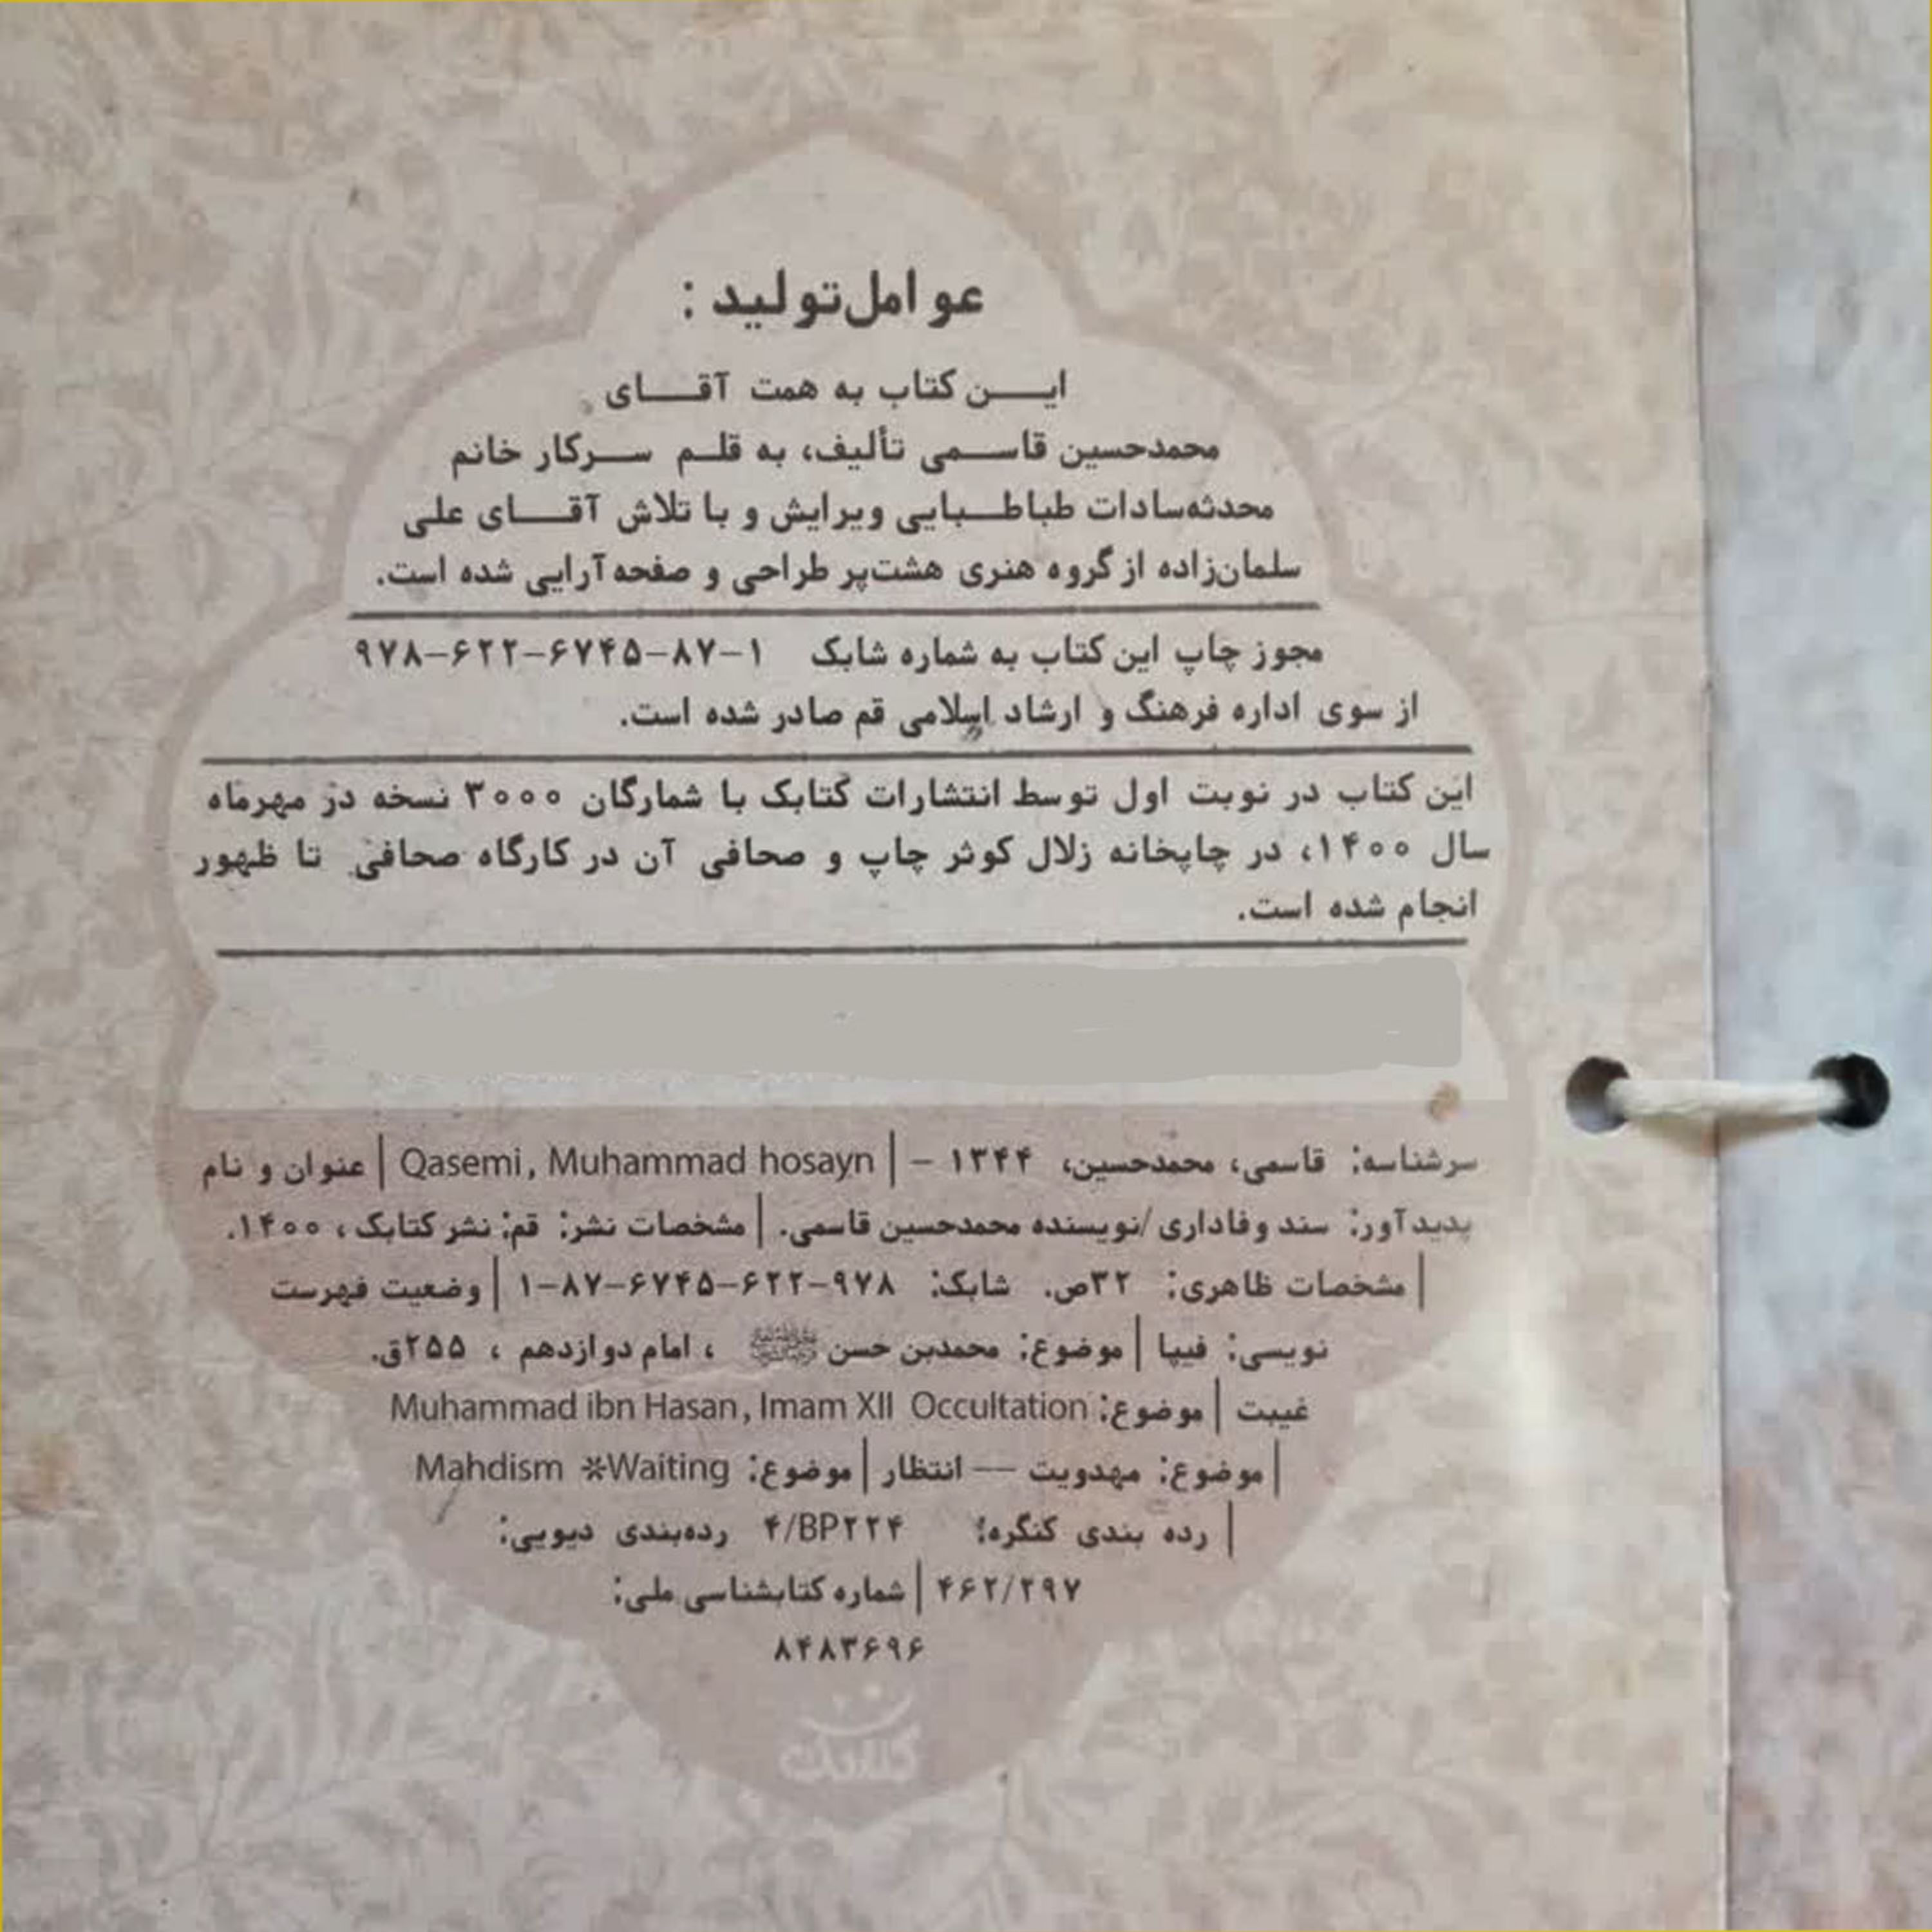 عوامل تولید :
این کتاب به همت آقای
محمدحسین قاسمی تألیف، به قلم سرکار خانم
محدثه‌سادات طباطبایی ویرایش و با تلاش آقای علی
سلمان‌زاده از گروه هنری هشت‌پر طراحی و صفحه آرایی شده است.
مجوز چاپ این کتاب به شماره شابک ۱-۸۷-۶۷۴۵-۶۲۲-۹۷۸
از سوی اداره فرهنگ و ارشاد اسلامی قم صادر شده است.
این کتاب در نوبت اول توسط انتشارات کتابک با شمارگان ۳۰۰۰ نسخه در مهرماه
سال ۱۴۰۰، در چاپخانه زلال کوثر چاپ و صحافی آن در کارگاه صحافی تا ظهور
انجام شده است.
سرشناسه: قاسمی، محمدحسین، ۱۳۴۴ - | Qasemi, Muhammad hosayn | عنوان و نام
پدیدآور: سند وفاداری /نویسنده محمدحسین قاسمی. | مشخصات نشر: قم: نشر کتابک ، ۱۴۰۰.
| مشخصات ظاهری: ۳۲ص. شابک: ۹۷۸-۶۲۲-۶۷۴۵-۸۷-۱ | وضعیت فهرست
نویسی: فیپا | موضوع: محمدبن حسن ، امام دوازدهم ، ۲۵۵ق.
غیبت | موضوع: Muhammad ibn Hasan, Imam XII Occultation
| موضوع: مهدویت -- انتظار | موضوع: Mahdism *Waiting
| رده بندی کنگره: ۴/BP۲۲۴ رده‌بندی دیویی:
۴۶۲/۲۹۷ | شماره کتابشناسی ملی:
۸۴۸۳۶۹۶
کتابک